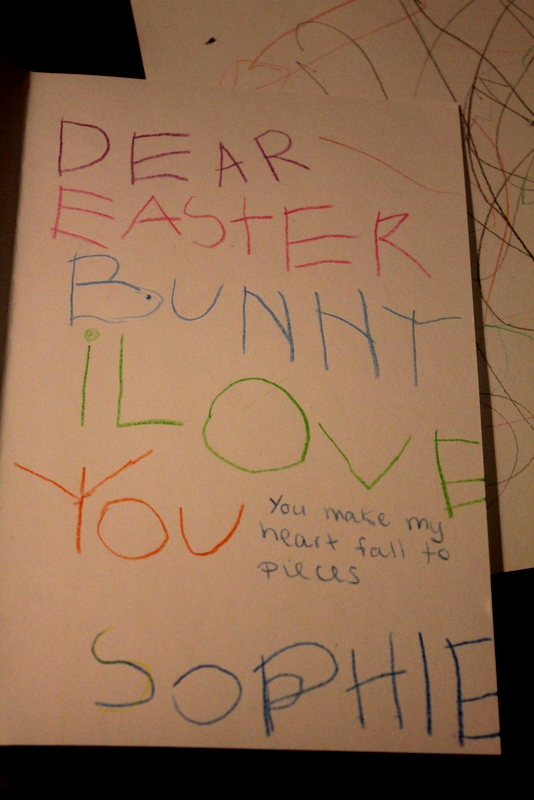 DEAR
EASTER
BUNNY
iLOVE
YOU
You make my
heart fall to
pieces
SOPHIE